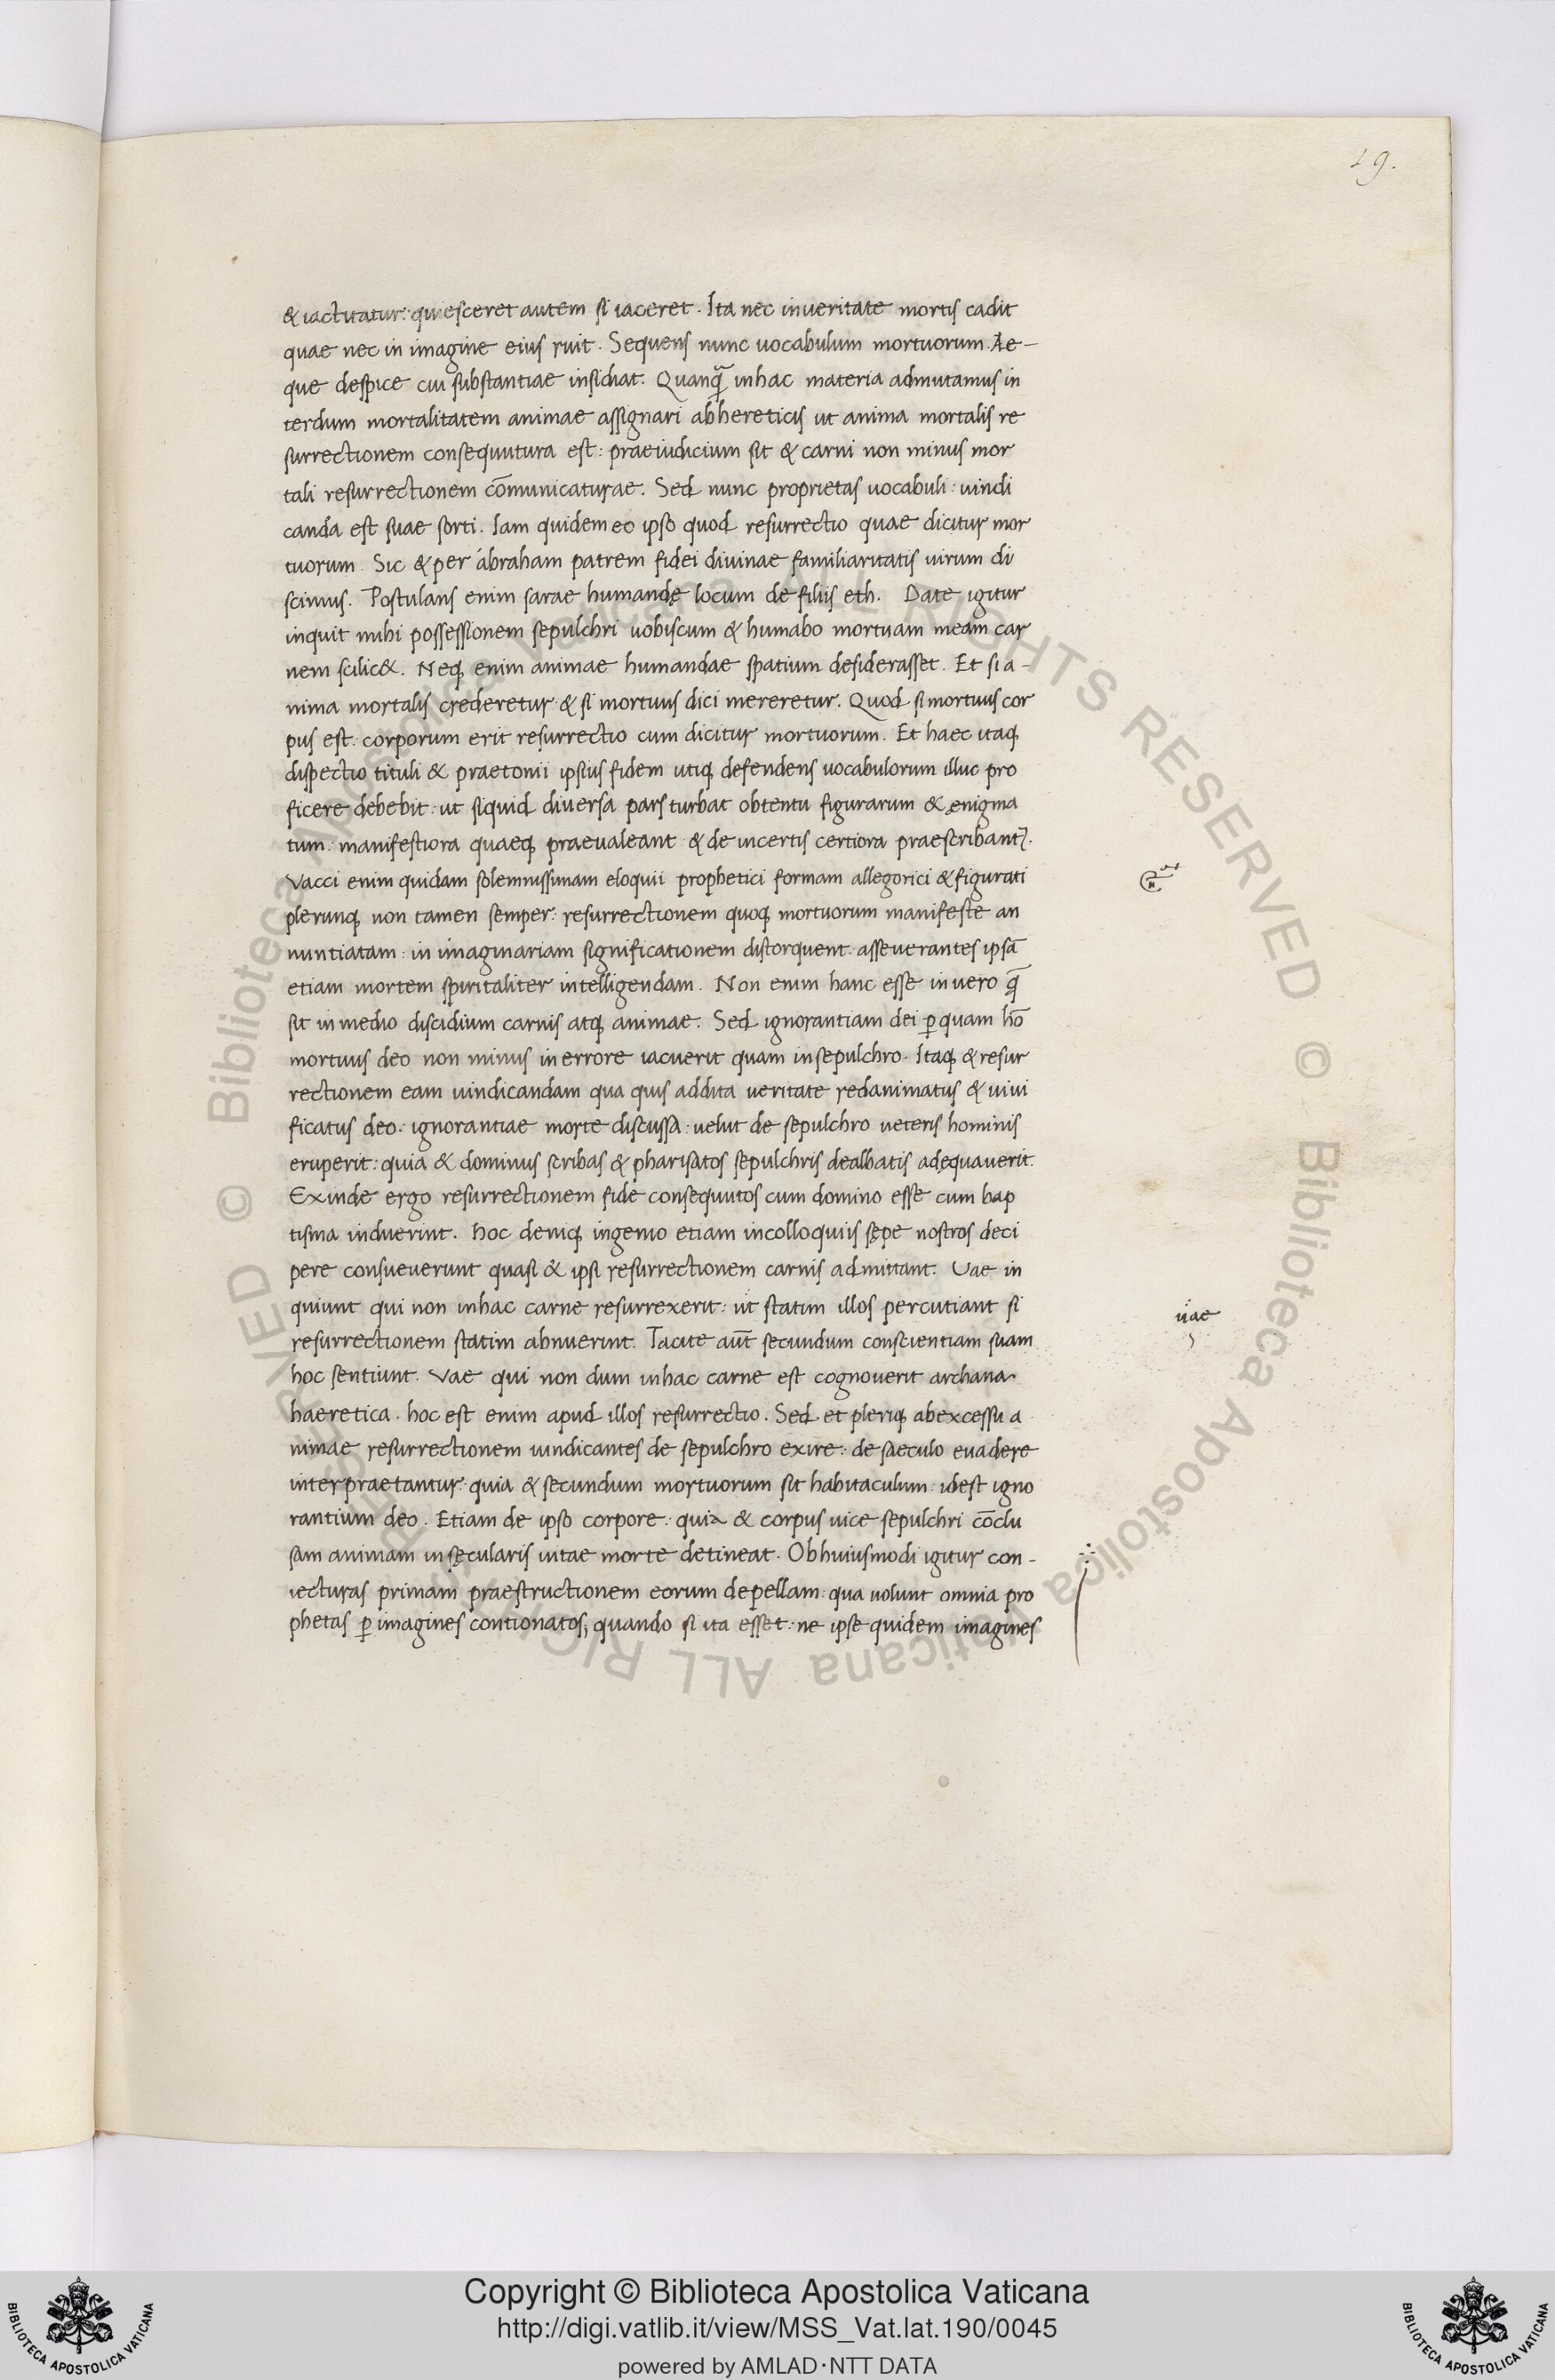 19.
& iactitatur: quiesceret autem si iaceret. Ita nec in veritate mortis cadit
quae nec in imagine eius ruit. Sequens nunc uocabulum mortuorum. Ae-
que despice cui substantiae insidiat. Quanq̃ inhac materia admittamus in
terdum mortalitatem animae assignari abhereticis ut anima mortalis re
surrectionem consequutura est: praeiudicium sit & carni non minus mor
tali resurrectionem cōmunicaturae. Sed nunc proprietas uocabuli: uindi
canda est suae sorti. Iam quidem eo ipso quod resurrectio quae dicitur mor
tuorum. Sic & per ábraham patrem fidei divinae familiaritatis uirum di
scimus. Postulans enim sarae humandę locum de filiis eth. Date igitur
inquit mihi possessionem sepulchri uobiscum & humabo mortuam meam car
nem scilic&. Neq; enim animae humandae spatium desiderasset. Et si a-
nima mortalis crederetur & si mortuus dici mereretur. Quod si mortuus cor
pus est: corporum erit resurrectio cum dicitur mortuorum. Et haec itaq;
dispectio tituli & praetonii ipsius fidem utiq; defendens uocabulorum illuc pro
ficere debebit: ut siquid diversa pars turbat obtentu figurarum & ęnigma
tum: manifestiora quaeq; praevaleant & de incertis certiora praescribant.
Vacci enim quidam solemnissimam eloquii prophetici formam allegorici & figurati
plerunq; non tamen semper: resurrectionem quoq; mortuorum manifeste an
nuntiatam: in imaginariam significationem distorquent: asseverantes ipsā
etiam mortem spiritaliter intelligendam. Non enim hanc esse in uero q̄
sit in medio discidium carnis atq; animae. Sed ignorantiam dei ꝑ quam hō
mortuus deo non minus in errore iacuerit quam in sepulchro. Itaq; & resur
rectionem eam uindicandam qua quis addita veritate redanimatus & uiui
ficatus deo: ignorantiae morte discussa: uelut de sepulchro veteris hominis
eruperit: quia & dominus scribas & pharisatos sepulchris dealbatis adęquaverit.
Exinde ergo resurrectionem fide consequutos cum domino esse cum bap
tisma induerint. hoc deniq; ingenio etiam incolloquiis sępe nostros deci
pere consueuerunt quasi & ipsi resurrectionem carnis admittant. Vae in
quiunt qui non inhac carne resurrexerit: ut statim illos percutiant si
resurrectionem statim abnuerint. Tacite aut̄ secundum conscientiam suam
hoc sentiunt. Vae qui non dum inhac carne est cognoverit archana
haeretica. hoc est enim apud illos resurrectio. Sed et pleriq; abexcessu a
nimae resurrectionem uindicantes de sepulchro exire: de saeculo evadere
interpraetantur: quia & secundum mortuorum sit habitaculum: idest igno
rantium deo. Etiam de ipso corpore: quia & corpus uice sepulchri cōclu
sam animam in sęcularis uitae morte detineat. Obhuiusmodi igitur con-
iecturas primam praestructionem eorum depellam: qua uolunt omnia pro
phetas ꝑ imagines contionatos; quando si ita esset: ne ipse quidem imagines
uae
© Biblioteca Apostolica Vaticana ALL RIGHTS RESERVED © Biblioteca Apostolica Vaticana ALL RIGHTS RESERVED
Copyright © Biblioteca Apostolica Vaticana
http://digi.vatlib.it/view/MSS_Vat.lat.190/0045
powered by AMLAD·NTT DATA
BIBLIOTECA APOSTOLICA VATICANA
BIBLIOTECA APOSTOLICA VATICANA